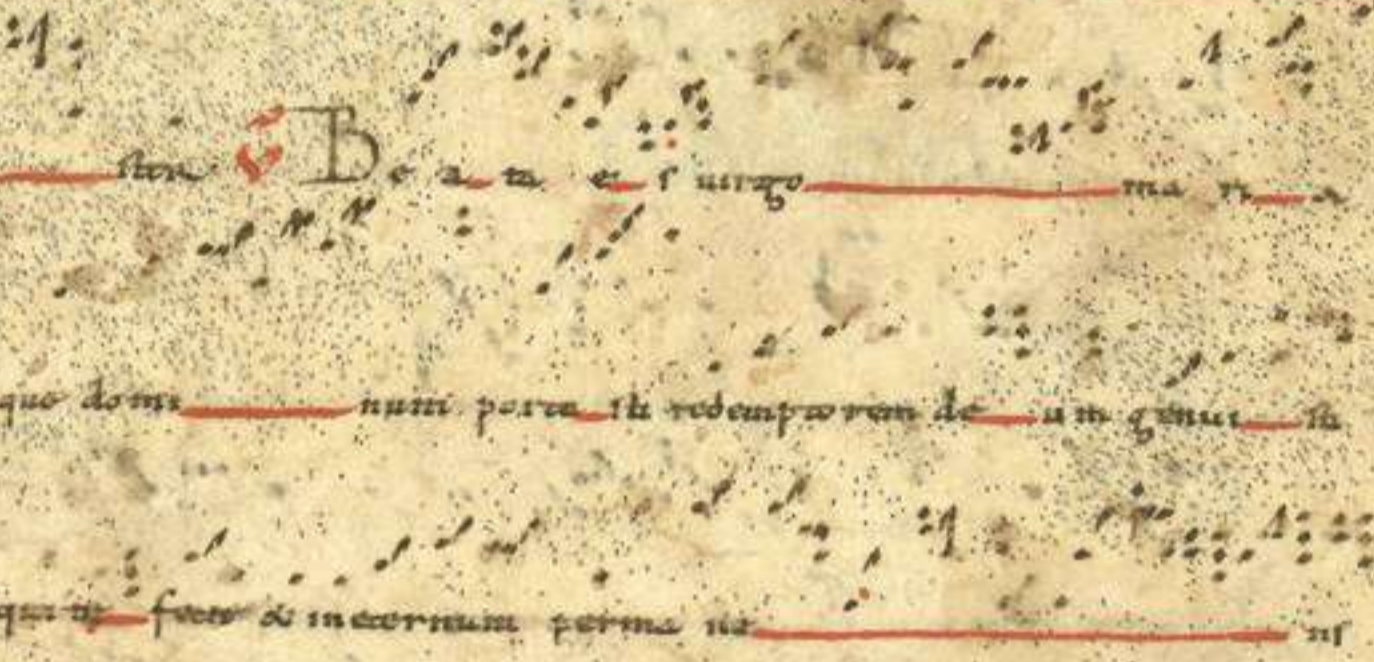 sten V Beata es uirgo maria
que dominum portasti redemptorem deum genuisti
qui te fecit & in eternum permanens